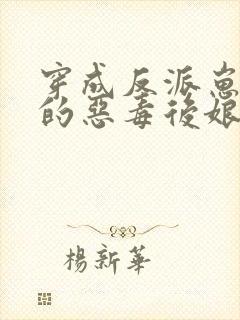 穿成反派崽
的惡毒後娘
楊新華